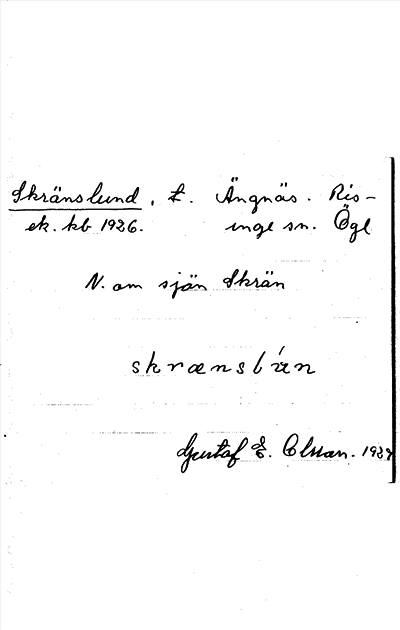 Skränslund, t. Ängnäs. Ris-
ek. kb 1926. inge sn. Ögl
N. om sjön Skrän
skrænslún
Gustaf E. Olsson. 193